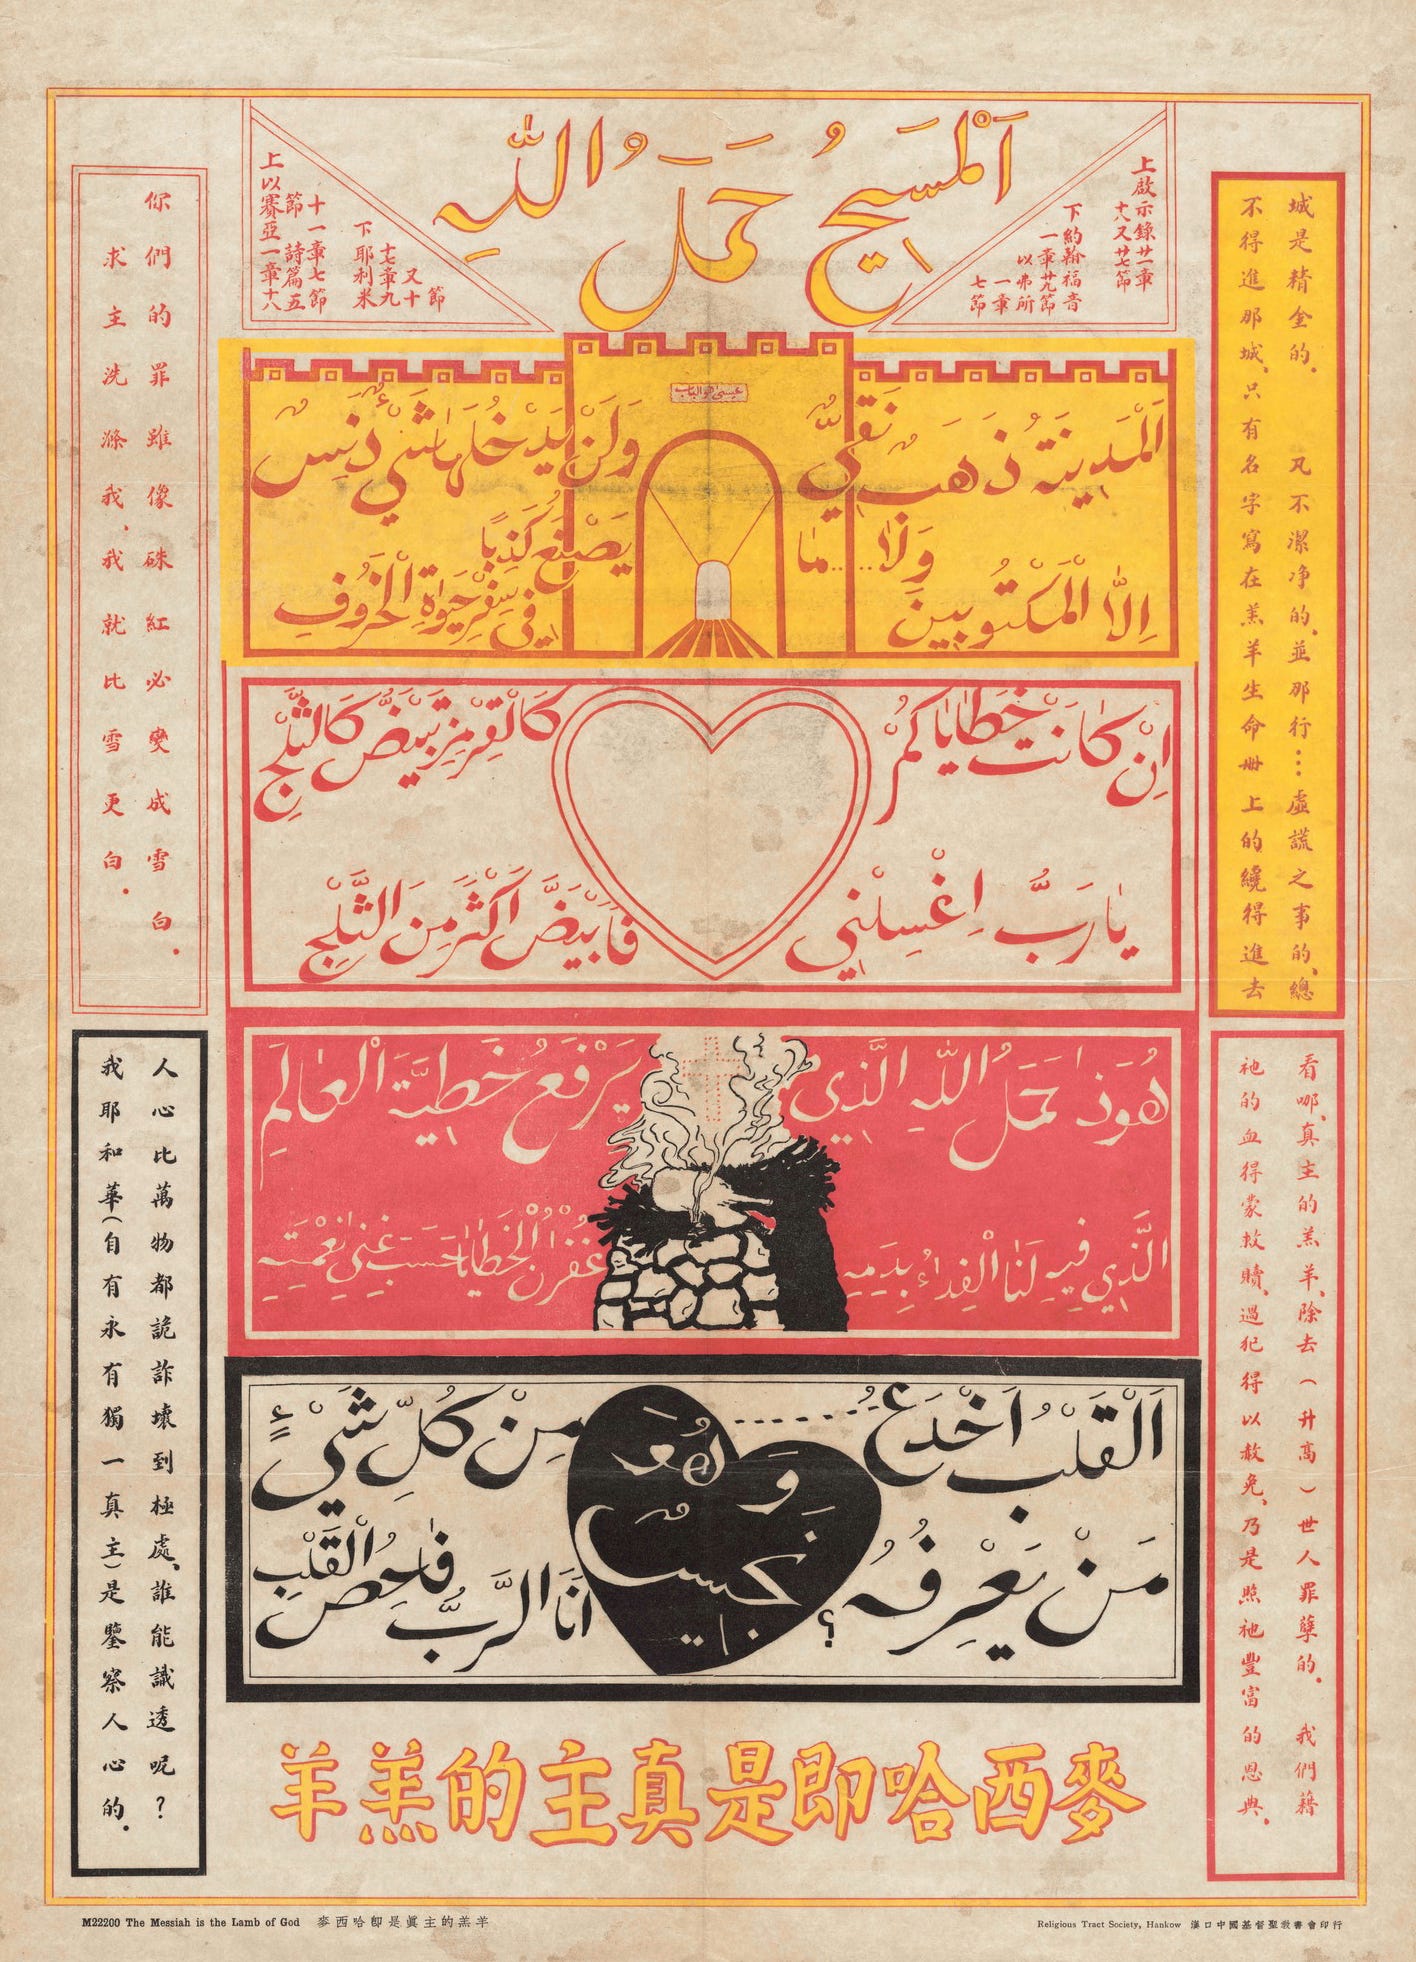 اَلْمَسِيحُ حَمَلُ اللّٰهِ
上啟示錄廿一章
十八又廿七節
下約翰福音
一章廿九節
以弗所
一章
七節
節
又十
十七章九
下耶利米
十一章七節
節 詩篇五
上以賽亞一章十八
عيسى هو الباب
اَلْمَدِينَةُ ذَهَبٌ نَقِيٌّ وَلَنْ يَدْخُلَهَا شَيْءٌ دَنِسٌ
وَلَا.....مَا يَصْنَعُ كَذِبًا
اِلَّا الْمَكْتُوبِينَ فِي سِفْرِ حَيٰوةِ الْخَرُوفِ
اِنْ كَانَتْ خَطَايَاكُمْ كَالْقِرْمِزِ تَبْيَضُّ كَالثَّلْجِ
يَارَبُّ اِغْسِلْنِي فَاَبْيَضَّ اَكْثَرَ مِنَ الثَّلْجِ
هُوَذَا حَمَلُ اللّٰهِ الَّذِي يَرْفَعُ خَطِيَّةَ الْعَالَمِ
الَّذِي فِيهِ لَنَا الْفِدَاءُ بِدَمِهِ غُفْرَانُ الْخَطَايَا حَسَبَ غِنٰى نِعْمَتِهِ
اَلْقَلْبُ اَخْدَعُ ........ مِنْ كُلِّ شَيْءٍ
وَهُوَ نَجِيسٌ
مَنْ يَعْرِفُهُ؟ اَنَا الرَّبُّ فَاحِصُ الْقَلْبِ
城是精金的. 凡不潔净的.並那行...虛謊之事的.總
不得進那城.只有名字寫在羔羊生命册上的纔得進去
看哪.真主的羔羊.除去(升高)世人罪孽的. 我們藉
祂的血得蒙救贖.過犯得以赦免.乃是照祂豐富的恩典.
你們的罪雖像硃紅必變成雪白.
求主洗滌我.我就比雪更白.
人心比萬物都詭詐壞到極處.誰能識透呢?
我耶和華(自有永有獨一真主)是鑒察人心的.
麥西哈即是真主的羔羊
M22200 The Messiah is the Lamb of God 麥西哈卽是眞主的羔羊
Religious Tract Society, Hankow 漢口中國基督聖教書會印行